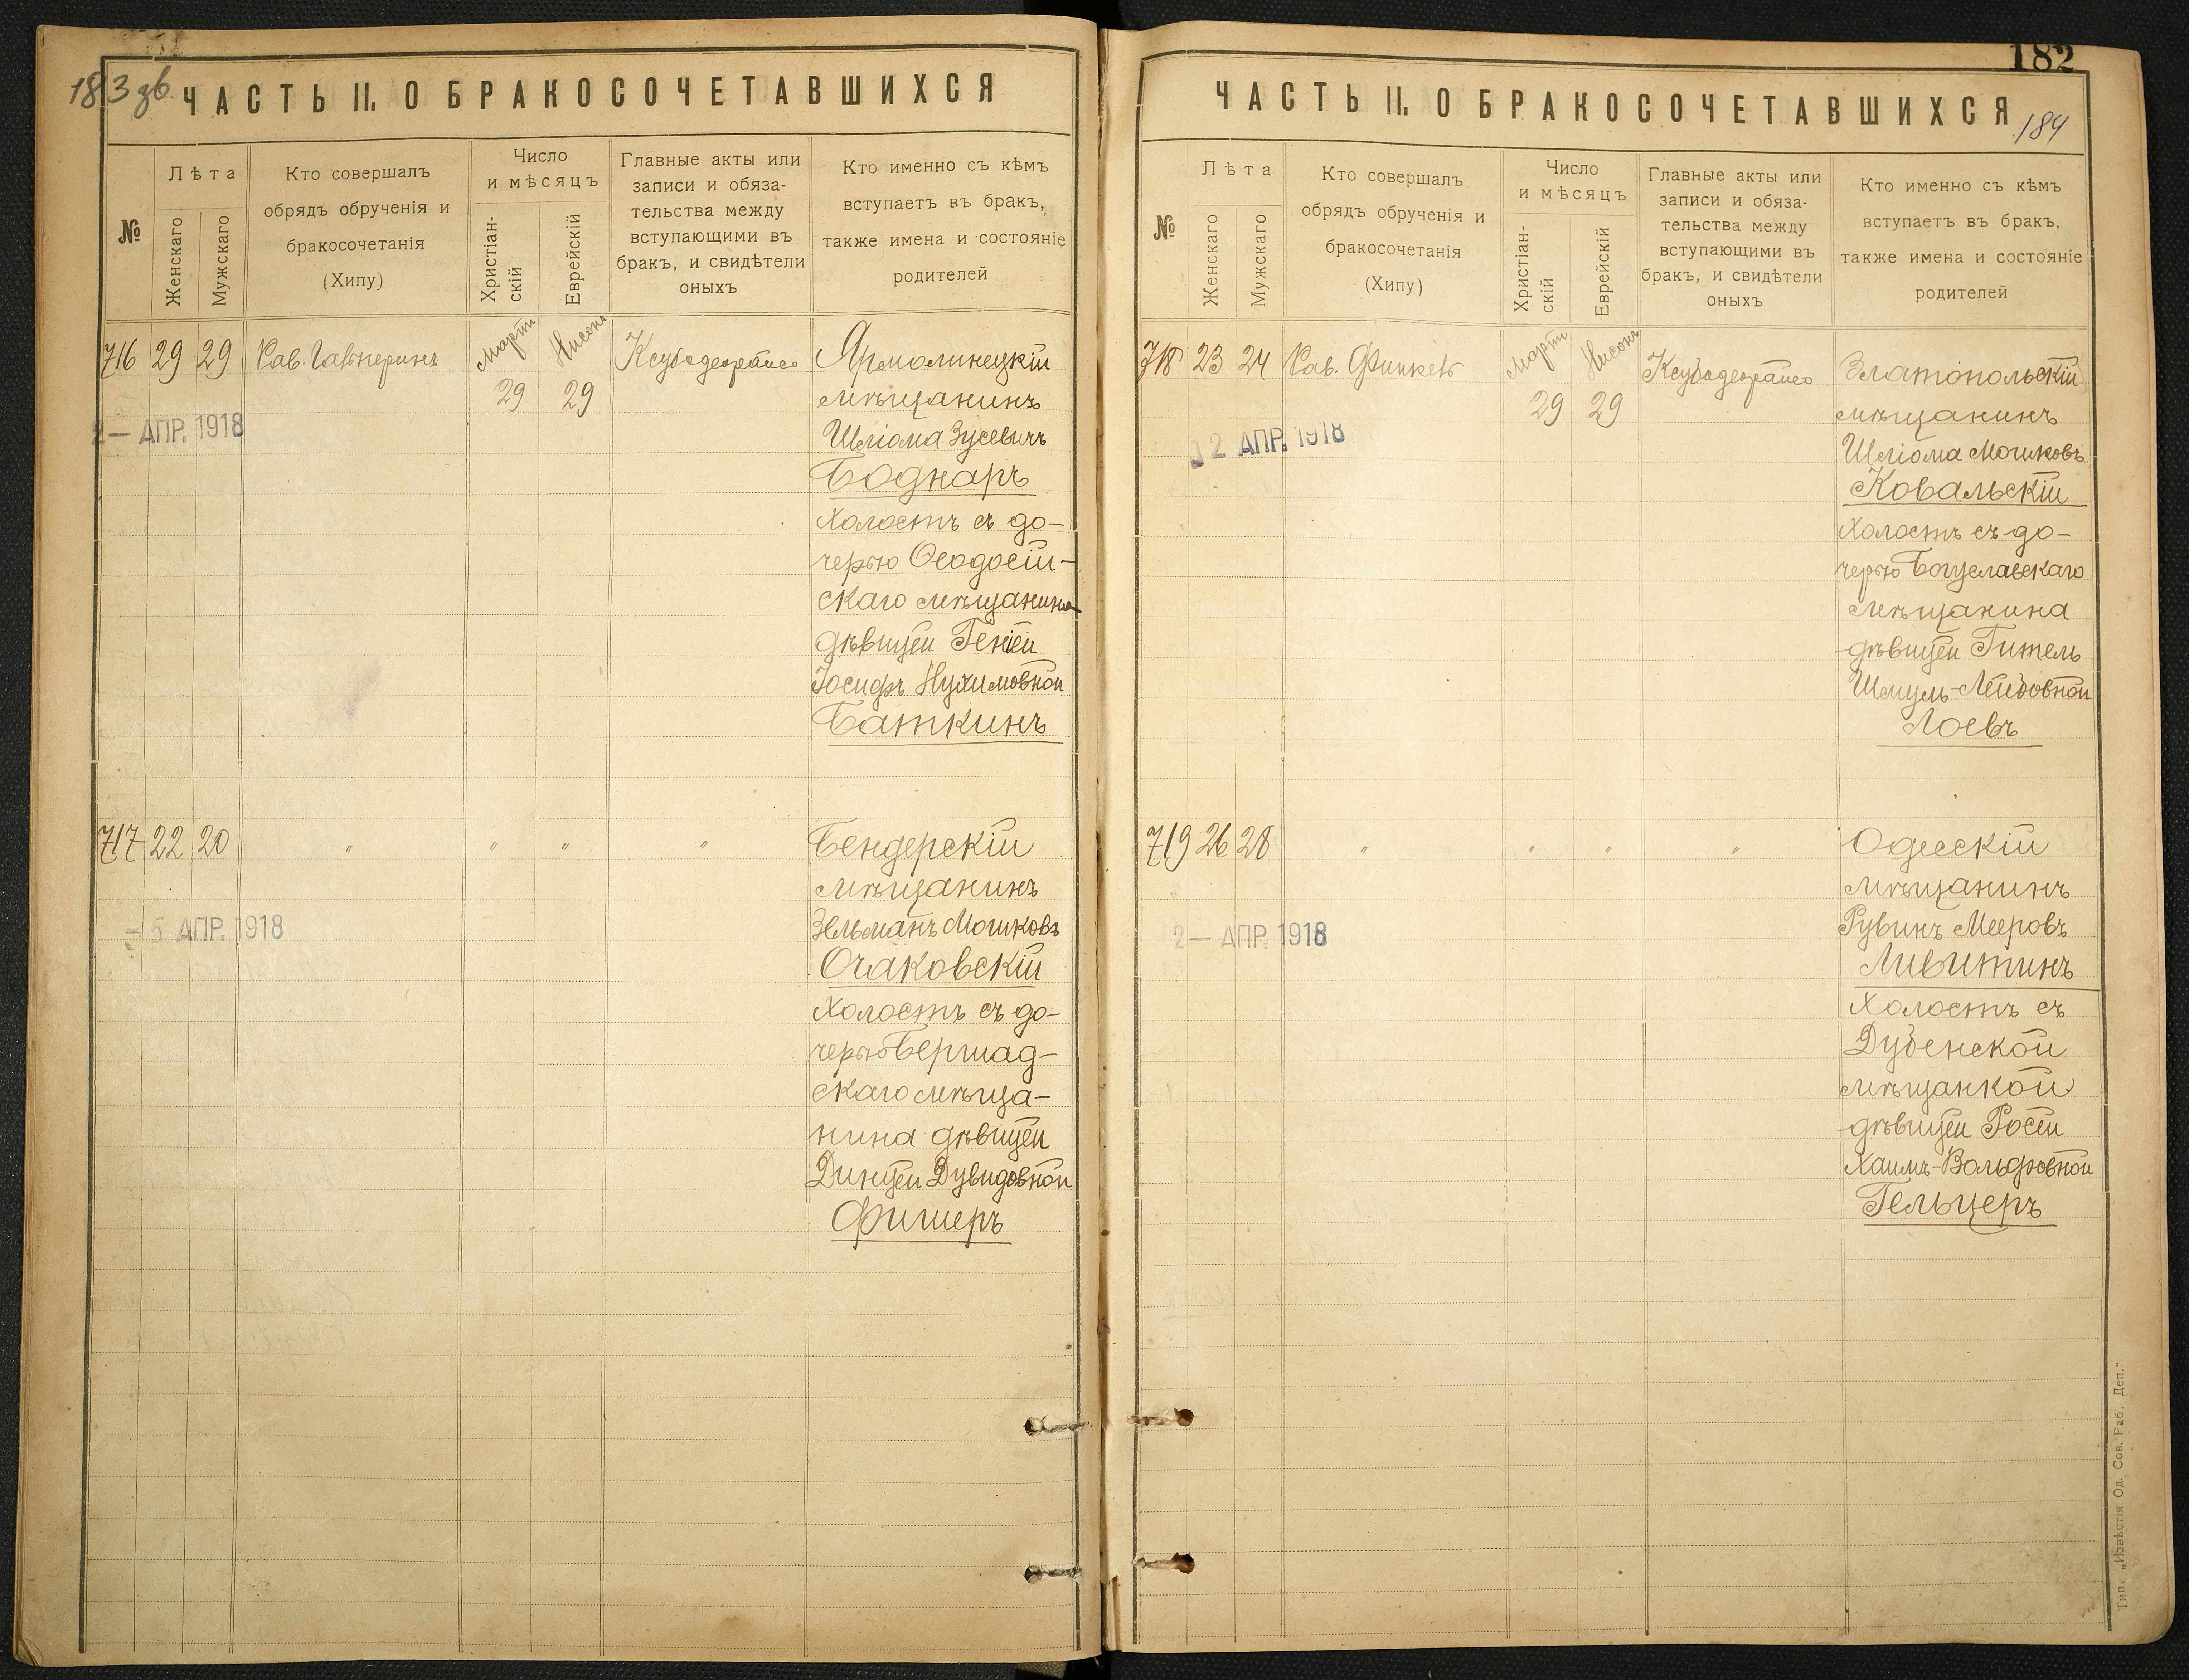 183 зв.
ЧАСТЬ II. О БРАКОСОЧЕТАВШИХСЯ
№
Лѣта
Женскаго
Мужскаго
Кто совершалъ
обрядъ обрученія и
бракосочетанія
(Хипу)
Число
и мѣсяцъ
Христіан-
скій
Еврейскій
Главные акты или
записи и обяза-
тельства между
вступающими въ
бракъ, и свидѣтели
оныхъ
Кто именно съ кѣмъ
вступаетъ въ бракъ,
также имена и состояніе
родителей
716 29 29 Рав. Март Нисонъ
29 29
2 — АПР. 1918
Ярмолинецкій
мѣщанинъ
Шліома Зусевичъ
Боднаръ
холостъ съ до-
черью Ѳеодосій-
скаго мѣщанина
дѣвицей Геніей
Іосифъ Нухимовной
Баткинъ
717 22 20 " " " "
- 5 АПР. 1918
Бендерскій
мѣщанинъ
Зельманъ Мошковъ
Очаковскій
холостъ съ до-
черью Бершад-
скаго мѣща-
нина дѣвицей
Динцей Дувидовной
Фишеръ
182
184
ЧАСТЬ II. О БРАКОСОЧЕТАВШИХСЯ
№
Лѣта
Женскаго
Мужскаго
Кто совершалъ
обрядъ обрученія и
бракосочетанія
(Хипу)
Число
и мѣсяцъ
Христіан-
скій
Еврейскій
Главные акты или
записи и обяза-
тельства между
вступающими въ
бракъ, и свидѣтели
оныхъ
Кто именно съ кѣмъ
вступаетъ въ бракъ,
также имена и состояніе
родителей
718 23 24 Рав. Март Нисонъ
29 29
12 АПР. 1918
Златопольскій
мѣщанинъ
Шліома Мошковъ
Ковальскій
холостъ съ до-
черью Богуславскаго
мѣщанина
дѣвицей Гитель
Шмуль-Лейбовной
Лоевъ
719 26 28 " " " "
2 — АПР. 1918
Одесскій
мѣщанинъ
Рувинъ Мееровъ
Ливитинъ
холостъ съ
Дубенской
мѣщанкой
дѣвицей Росей
Хаимъ-Вольфовной
Гельцеръ
Тип. „Извѣстія Од. Сов. Раб. Деп."